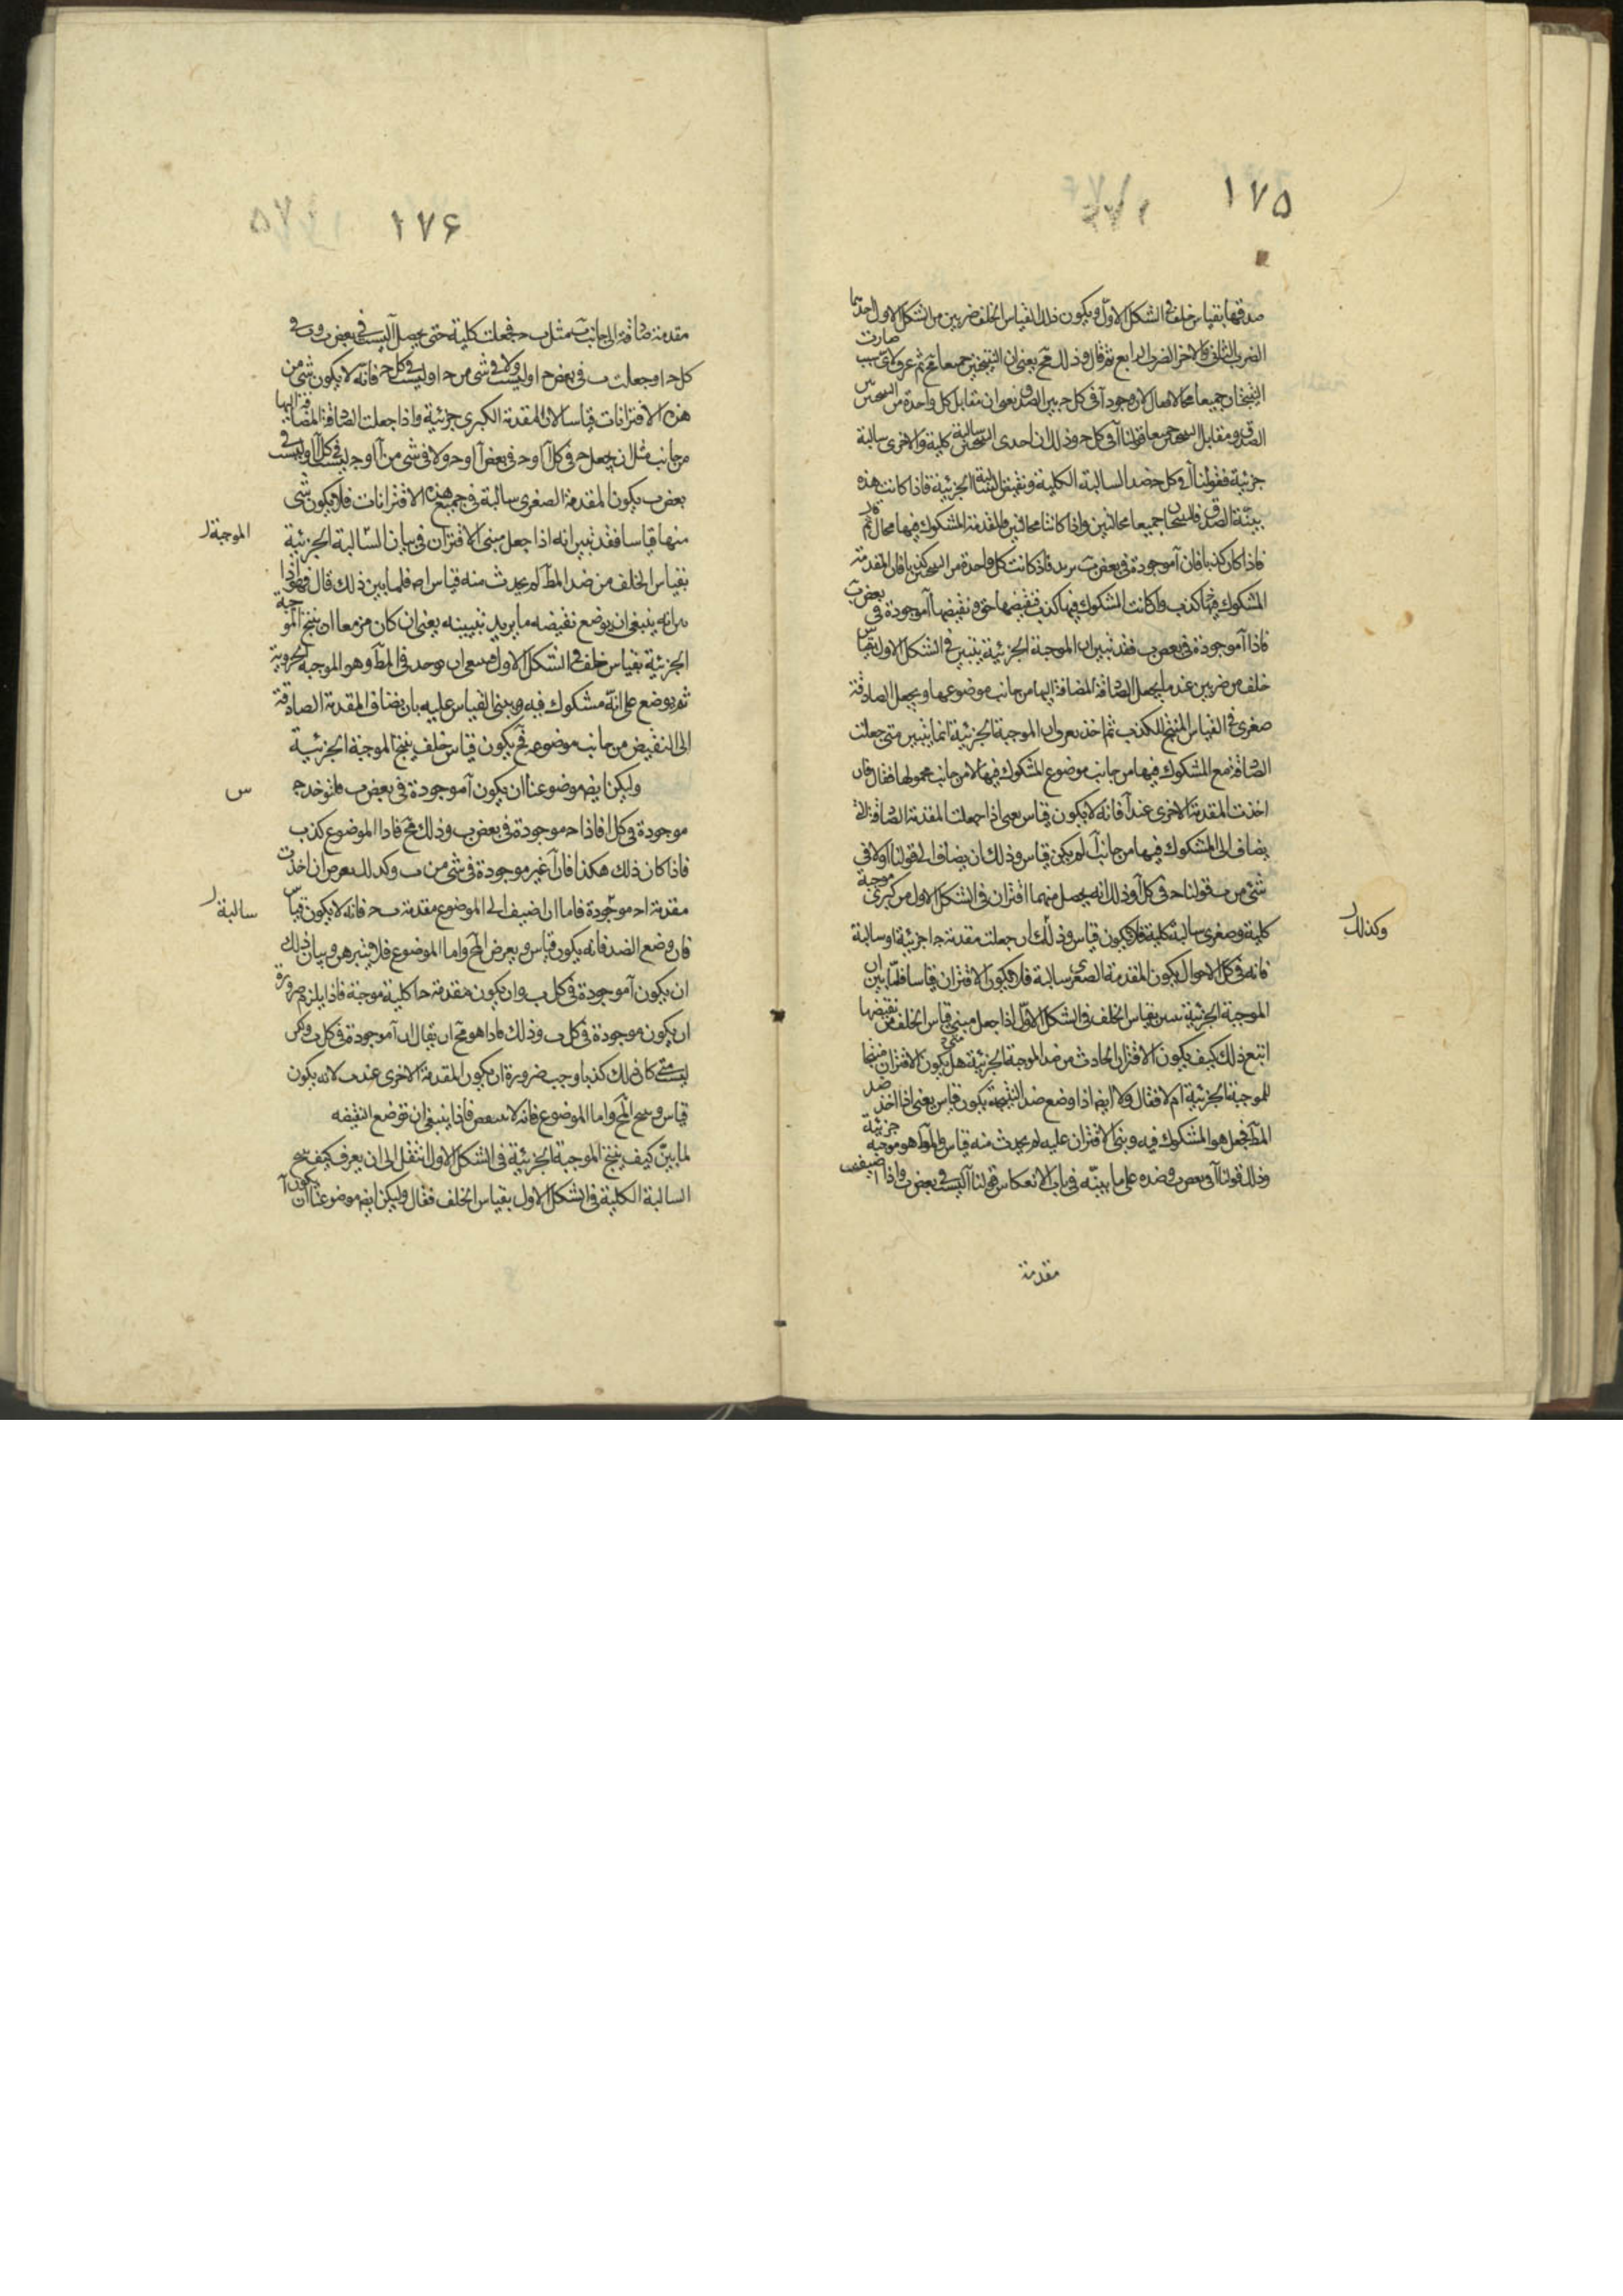 ١٧۵
صدقها بقياس خلف في الشكل الاول ويكون ذلك القياس الخلف ضربين من الشكل الاول احدهما
الضرب الثاني والاخر الضرب الرابع ثم قال وذلك مح يعني ان النتيجتين جميعا مح ثم عرف لاي سبب صارت
النتيجتان جميعا محالا فقال لان وجود آ في كل ج بين الصدق يعني ان مقابل كل واحدة من النتيجتين بين
الصدق ومقابل النتيجتين جميعا قولنا آ في كل ج وذلك ان احدى النتيجتين سالبة كلية والاخرى سالبة
جزئية فقولنا آ في كل ج ضد السالبة الكلية ونقيض السالبة الجزئية فاذا كانت هذه
بينة الصدق فالنتيجتان جميعا محالتين واذا كانتا محالتين فالمقدمة المشكوك فيها محال ثم قال
فاذا كان كذبا فان آ موجودة في بعض ب يريد فاذ كانت كل واحدة من النتيجتين كذبا فان المقدمة
المشكوك فيها كذب واذ كانت المشكوك فيها كذب فنقيضها حق ونقيضها آ موجودة في بعض ب
فاذا آ موجودة في بعض ب فقد تبين ان الموجبة الجزئية يتبين في الشكل الاول بقياس
خلف من ضربين عند ما يجعل الصادقة المضافة اليها من جانب موضوعها ويجعل الصادقة
صغرى في القياس المنتج للكذب ثم اخذ يعرف ان الموجبة الجزئية انما يتبين متى جعلت
الصادقة مع المشكوك فيها من جانب موضوع المشكوك فيها لا من جانب محمولها فقال فان
اخذت المقدمة الاخرى عند آ فانه لا يكون قياس يعني اذا جعلت المقدمة الصادقة التي
يضاف الى المشكوك فيها من جانب آ لم يكن قياس وذلك ان يضاف الى قولنا آ ولا في
شيء من ب قولنا ج في كل آ وذلك انه يحصل منهما اقتران في الشكل الاول من كبرى موجبة
كلية وصغرى سالبة كلية فلا يكون قياس وذلك ان جعلت مقدمة ج ا جزئية او سالبة
وكذلك
فانه في كل الاحوال يكون المقدمة الصغرى سالبة فلا يكون الاقتران قياسا فلما بين ان
الموجبة الجزئية تبين بقياس الخلف في الشكل الاول اذا جعل مبنى قياس الخلف من نقيضها
اتبع ذلك كيف يكون الاقتران الحادث من ضد الموجبة الجزئية هل يكون الاقتران منتجا
للموجبة الجزئية ام لا فقال ولا ايضا اذا وضع ضد النتيجة يكون قياس يعني اذا اخذ ضد
المط فجعل هو المشكوك فيه وبنى الاقتران عليه لم يحدث منه قياس والمط هو موجبة جزئية
وذلك قولنا آ في بعض ب وضده على ما بينه في باب الانعكاس قولنا آ ليست في بعض ب واذا اضيفت
مقدمة
١٧۶
مقدمة صادقة الى جانب ب مثل ب ج فجعلت كلية حتى يحصل آ ليست في بعض ب وب في
كل ج او جعلت ب في بعض ج او ولا في شيء من ج او ليست في كل ج فانه لا يكون شيء من
هذه الاقترانات قياسا لان المقدمة الكبرى جزئية واذا جعلت الصادقة المضافة اليها
من جانب آ مثل ان يجعل ج في كل آ او ج في بعض آ او ج ولا في شيء من آ او ج ليست في كل آ وآ ليست في
بعض ب يكون المقدمة الصغرى سالبة في جميع هذه الاقترانات فلا يكون شيء
منها قياسا فقد تبين انه اذا جعل مبنى الاقتران في بيان السالبة الجزئية
الموجبة
بقياس الخلف من ضد المط لم يحدث منه قياس اصلا فلما بين ذلك قال فهو اذا
بين انه ينبغي ان يوضع نقيضه ما يريد تبيينه يعني ان كان مزمعا ان ينتج الموجبة
الجزئية بقياس خلف في الشكل الاول فينبغي ان يوخذ في المط وهو الموجبة الجزوية
ثم يوضع على انه مشكوك فيه ويبنى القياس عليه بان يضاف المقدمة الصادقة
الى النقيض من جانب موضوعه فح يكون قياس خلف ينتج الموجبة الجزئية
وليكن ايضا موضوعنا ان يكون آ موجودة في بعض ب فلنوخذ ج
س
موجودة في كل ا فاذا ج موجودة في بعض ب وذلك مح فاذا الموضوع كذب
فاذا كان ذلك هكذا فان آ غير موجودة في شيء من ب وكذلك يعرض ان اخذت
مقدمة ا ج موجودة فاما ان اضيف الى الموضوع مقدمة ب ج فانه لا يكون قياس
سالبة
فان وضع الضد فانه يكون قياس ويعرض المح واما الموضوع فلا يتبرهن وبيان ذلك
ان يكون آ موجودة في كل ب وان يكون مقدمة ج ا كلية موجبة فاذا يلزم ضرورة
ان يكون موجودة في كل ب وذلك فاذا هو مح ان يقال ان آ موجودة في كل ب ولكن
ليست متى كان ذلك كذبا وجب ضرورة ان يكون المقدمة الاخرى عند ب لانه يكون
قياس وينتج المح واما الموضوع فانه لا ينتقض فاذا ينبغي ان توضع النقيضه
لما بين كيف ينتج الموجبة الجزئية في الشكل الاول انتقل الى ان يعرف كيف ينتج
السالبة الكلية في الشكل الاول بقياس الخلف فقال وليكن ايضا موضوعنا ان يكون آ